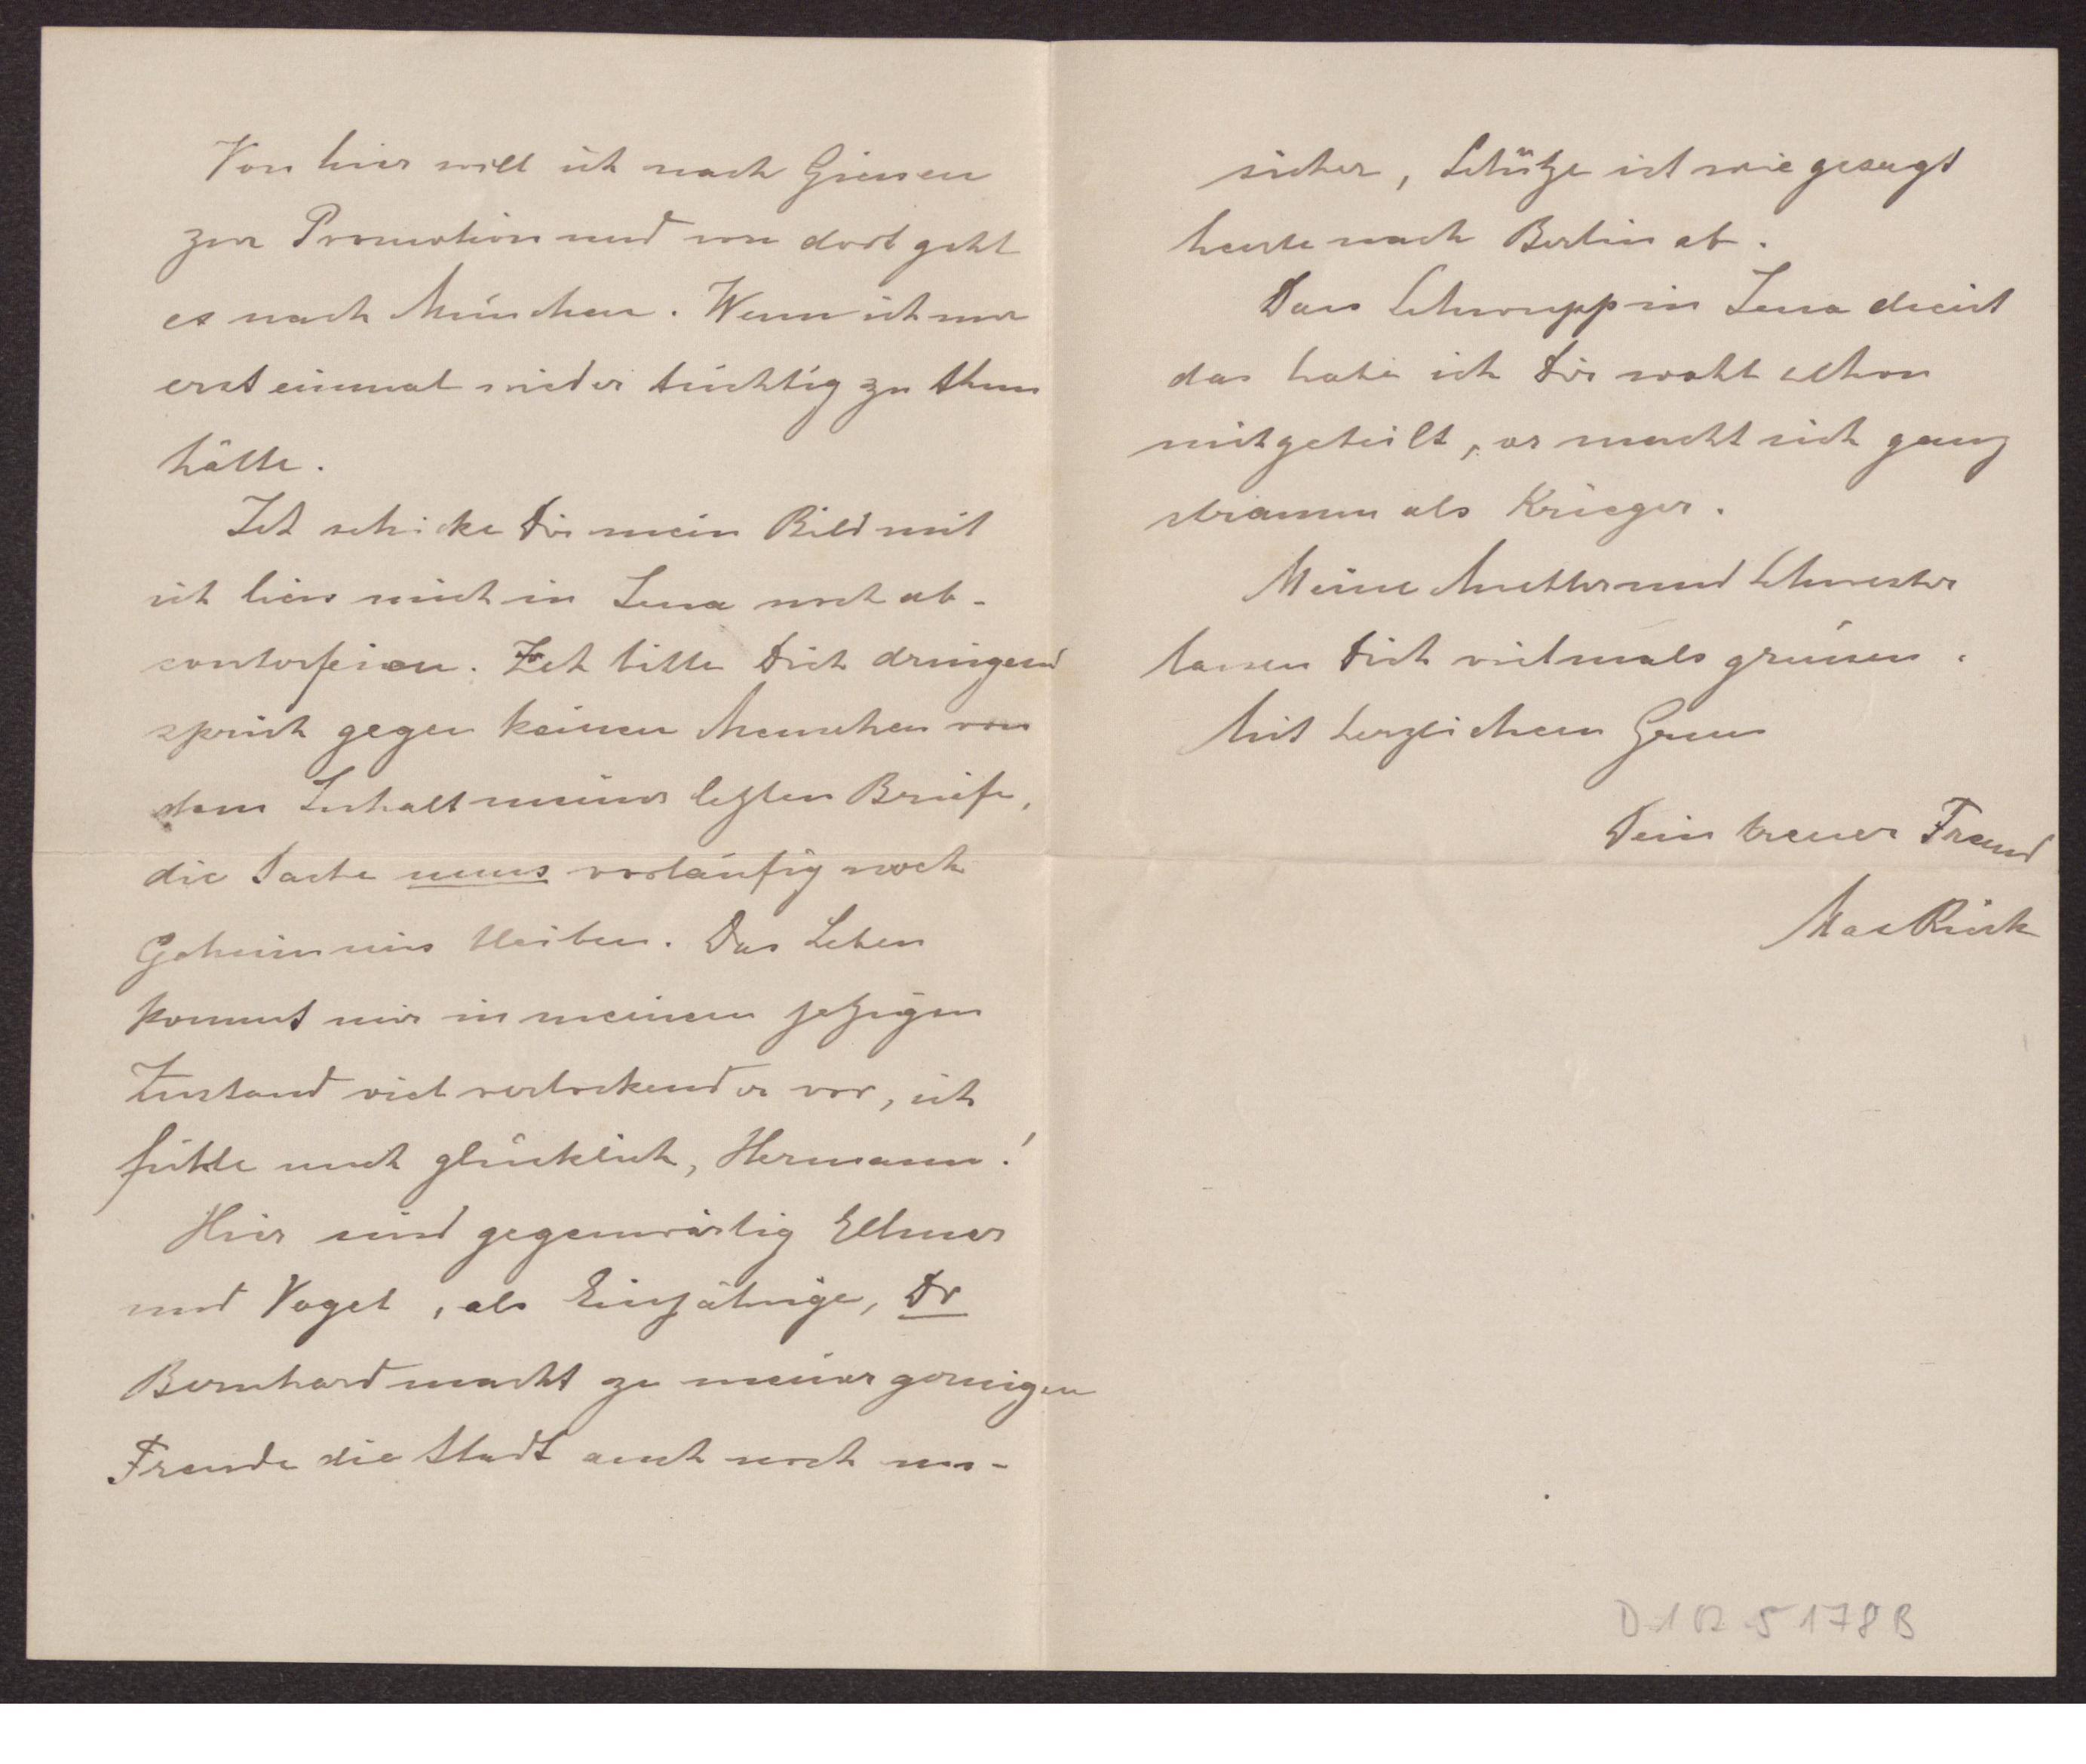 Von hier will ich nach Giessen
zur Promotion und von dort geht
es nach München. Wenn ich nur
erst einmal wieder tüchtig zu thun
hätte.
Ich schicke Dir mein Bild mit
ich liess mich in Jena noch ab-
contorfeien. Ich bitte Dich dringend
sprich gegen keinen Menschen von
dem Inhalt meiner letzten Briefe,
die Sache muss vorläufig noch
Geheimnis bleiben. Das Leben
kommt mir in meinem jetzigen
Zustand viel verlockender vor, ich
fühle mich glücklich, Hermann!
Hier sind gegenwärtig Ellmer
und Vogel, als Einjährige, Dr
Bernhard macht zu meiner
Freude die Stadt auch noch un-
sicher, Schütze ist wie gesagt
heute nach Berlin ab.
Dass Schrupp in Jena dient
das habe ich Dir wohl schon
mitgeteilt, er macht sich ganz
stramm als Krieger.
Meine Mutter und Schwester
lassen Dich vielmals grüssen.
Mit herzlichem Gruss
Dein treuer Freund
Max
D 1 5178 B